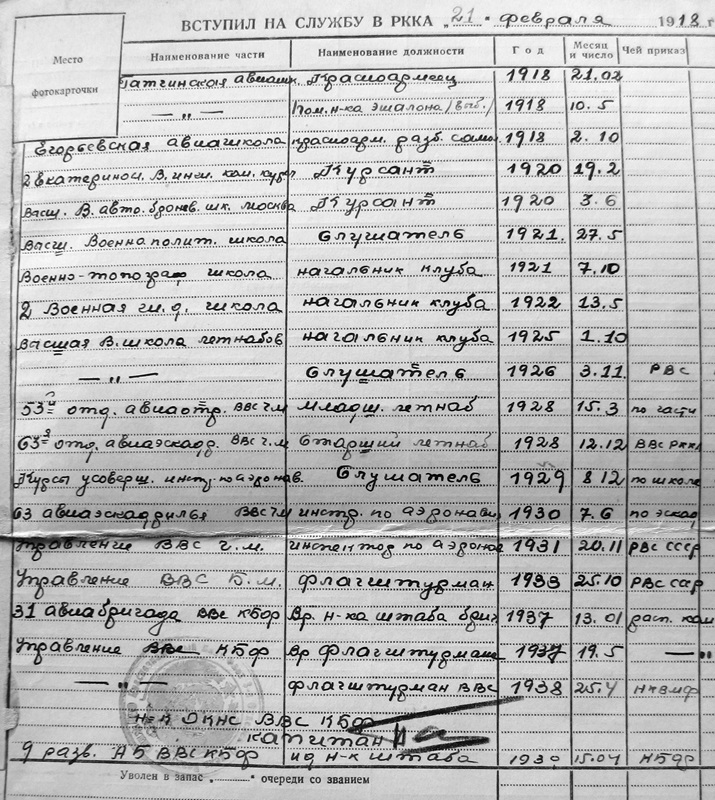 ВСТУПИЛ НА СЛУЖБУ В РККА „21“ февраля 1918 г
Место фотокарточки
Наименование части Наименование должности Год Месяц и число Чей приказ
Гатчинская авиашк. Красноармеец 1918 21.02
— „ — Пом. н-ка эшалона (выб.) 1918 10.5
Егорьевская авиашкола красноарм. разб. само 1918 2.10
2 Екатериносл. В. инж. ком. курс Курсант 1920 19.2
Высш. В. авто. бронев. шк. Москва Курсант 1920 3.6
Высш. Военнополит. школа Слушатель 1921. 27.5
Военно-топограф школа начальник клуба 1921 7.10
2 Военная школа начальник клуба 1922 13.5
Высшая В. школа летнабов начальник клуба 1925 1.10
— „ — Слушатель 1926 3.11. РВС
53й отд. авиаотр. ВВС Ч.М младш. летнаб 1928 15.3 по части
63я отд. авиаэскадр. ВВС Ч.М Старший летнаб 1928 12.12 ВВС РККА
Курсы усоверш. инстр. по аэронав. Слушатель 1929 8 12 по школе
63 авиаэскадрилья ВВС ЧМ инстр. по аэронави 1930 7.6 по эскад
Управление ВВС Ч.М. инспектор по аэронав 1931 20.11 РВС СССР
Управление ВВС Б.М. флагштурман 1933 25.10 РВС ССР
31 авиабригада ВВС КБФ Вр. н-ка штаба бриг 1937 13.01 расп. ком
Управление ВВС КБФ Вр флагштурмана 1937 19.5 — „
— „ — флагштурман ВВС 1938 25.4 НКВМФ
н-к ОКНС ВВС КБФ
капитан
9 разв. АБ ВВС КБФ ид н-к штаба 1939 15.07 КБФ
Уволен в запас „ “ очереди со званием